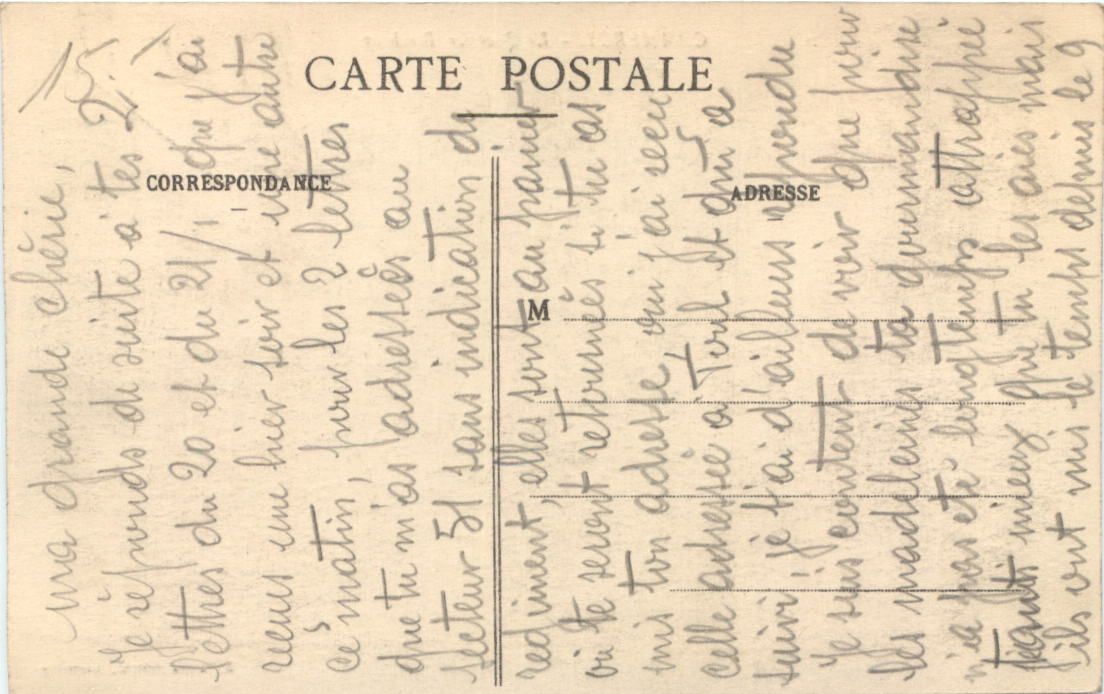 CARTE POSTALE
CORRESPONDANCE
ADRESSE
M
15
ma grande chérie,
je réponds de suite à tes 2
lettres du 20 et du 21/1 que j'ai
recues une hier soir et une autre
ce matin, pour les 2 lettres
que tu m'as adressées au
secteur 51 sans indication du
regiment, elles sont au panier
ou te seront retournées si tu as
mis ton adresse, oui j'ai recu
celle adressée à Toul et qui a
suivi je t'ai d'ailleurs repondu
je suis content de voir que pour
les madeleines ta gourmandise
n'a pas été longtemps attrapée
tant mieux que tu les aies mais
ils ont mis le temps depuis le 9